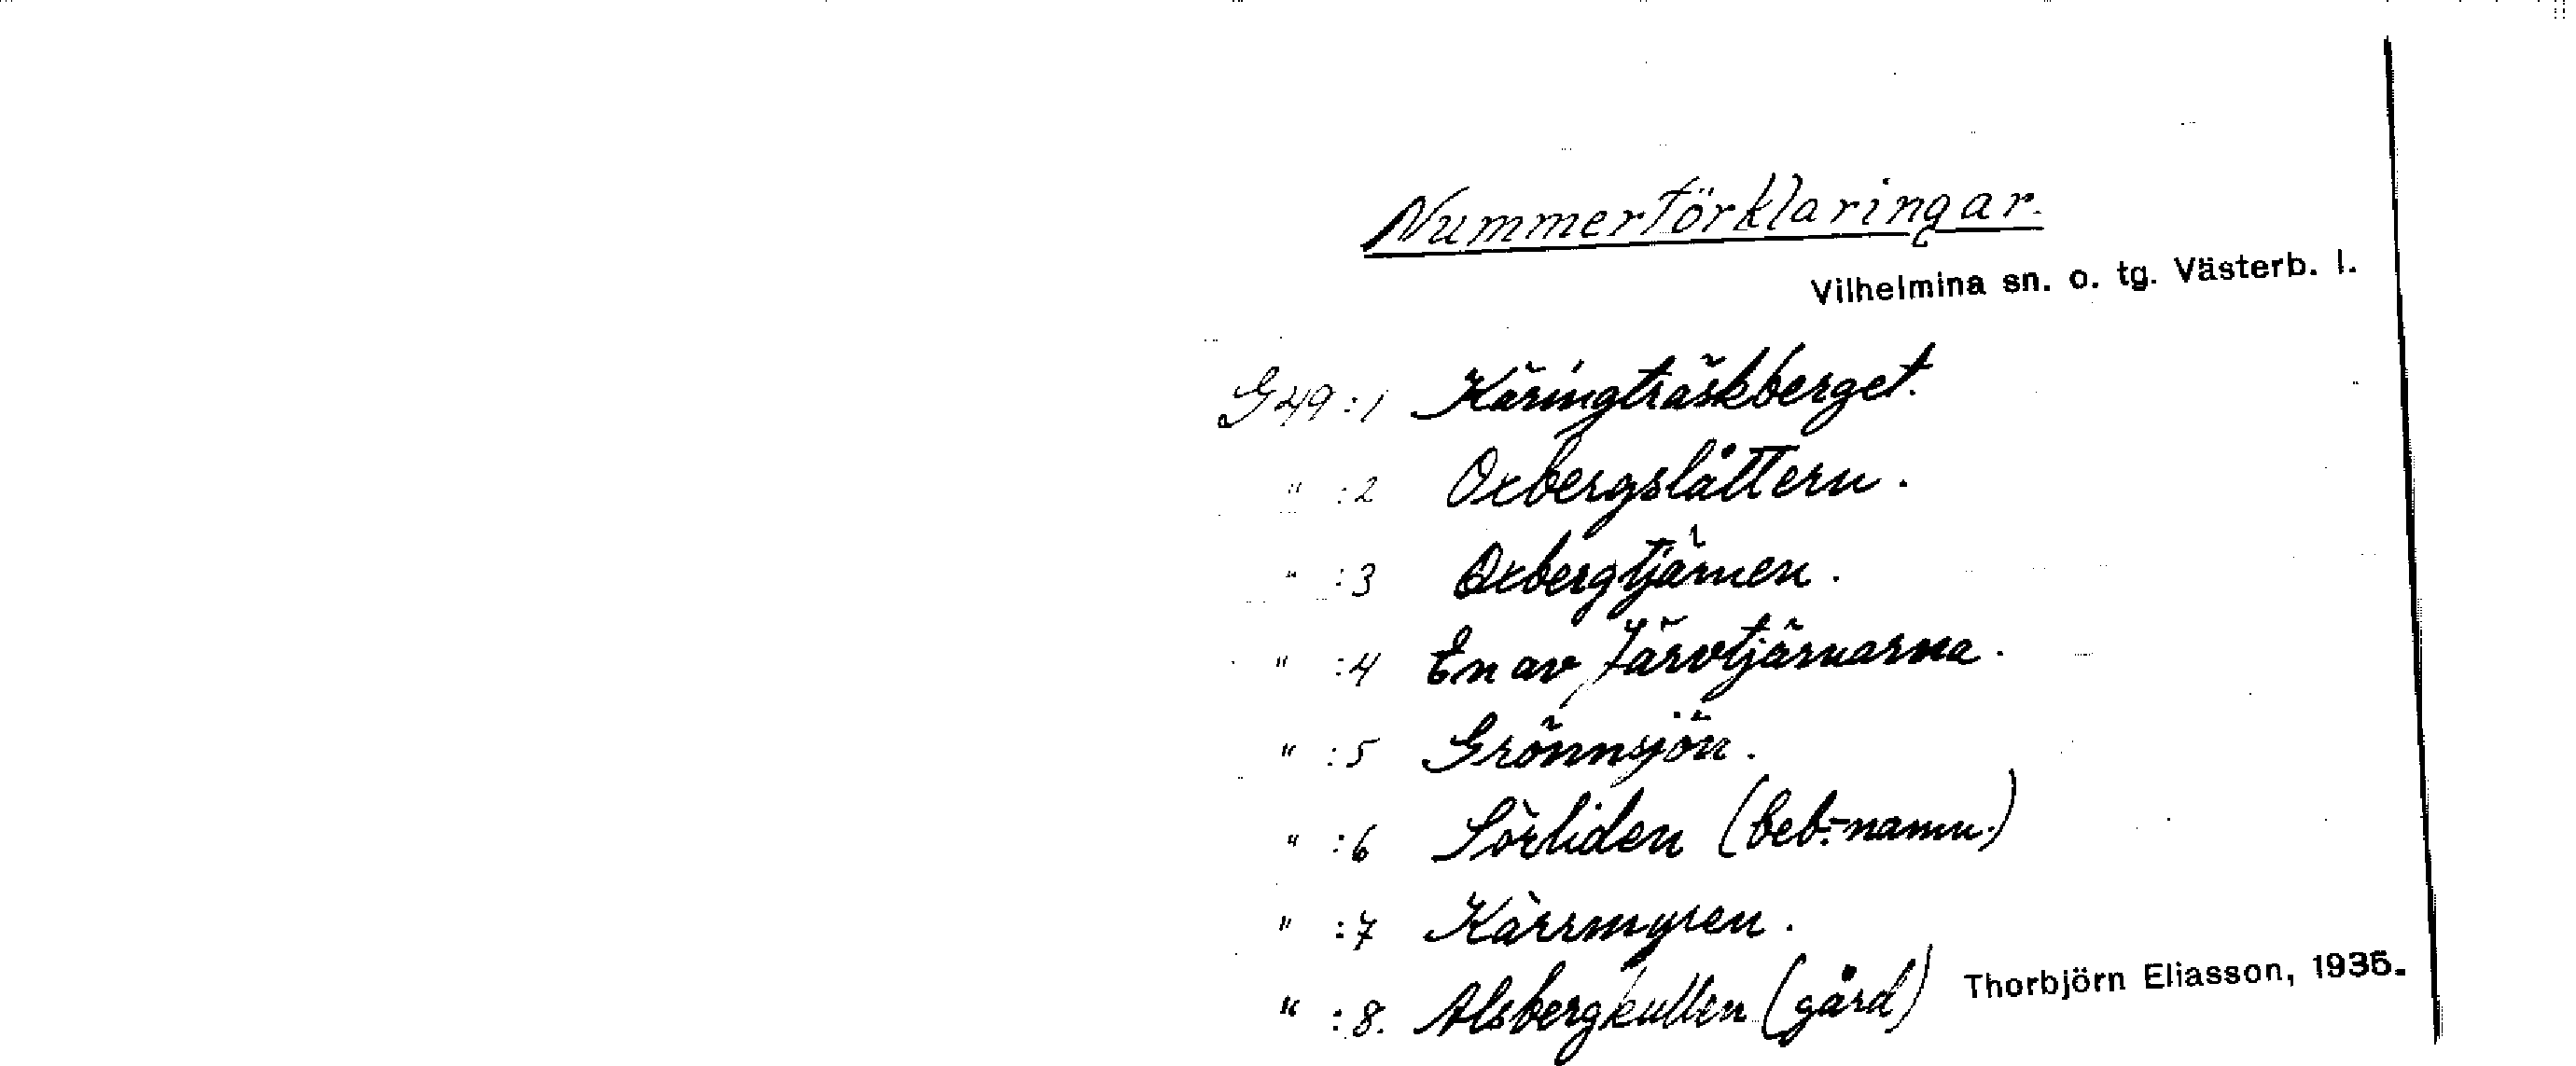 Nummerförklaringar.
Vilhelmina sn. o. tg. Västerb. l.
G49:1 Käringträskberget.
" :2 Oxbergslåttern.
" :3 Oxbergtjärnen.
" :4 En av Järvtjärnarna.
" :5 Grönnsjön.
" :6 Sörliden (beb.-namn.)
" :7 Kärrmyren.
" :8. Alsbergkullen (gård)
Thorbjörn Eliasson, 1935.